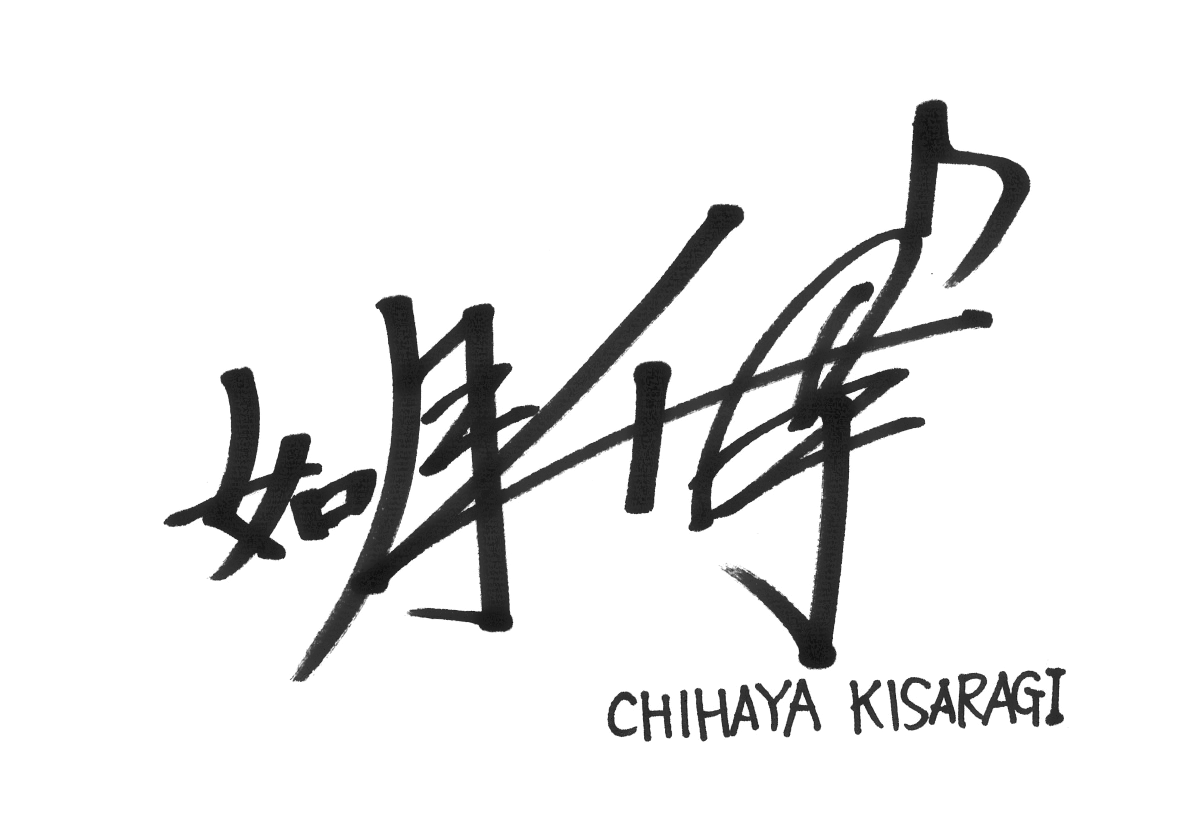 如月千早
CHIHAYA KISARAGI